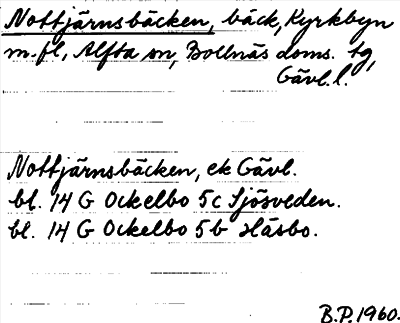 Nottjärnsbäcken, bäck, Kyrkbyn
m.fl, Alfta sn, Bollnäs doms. tg,
Gävl.l.
Nottjärnsbäcken, ek Gävl.
bl. 14 G Ockelbo 5c Sjösveden.
bl. 14 G Ockelbo 5b Häsbo.
B.P. 1960.